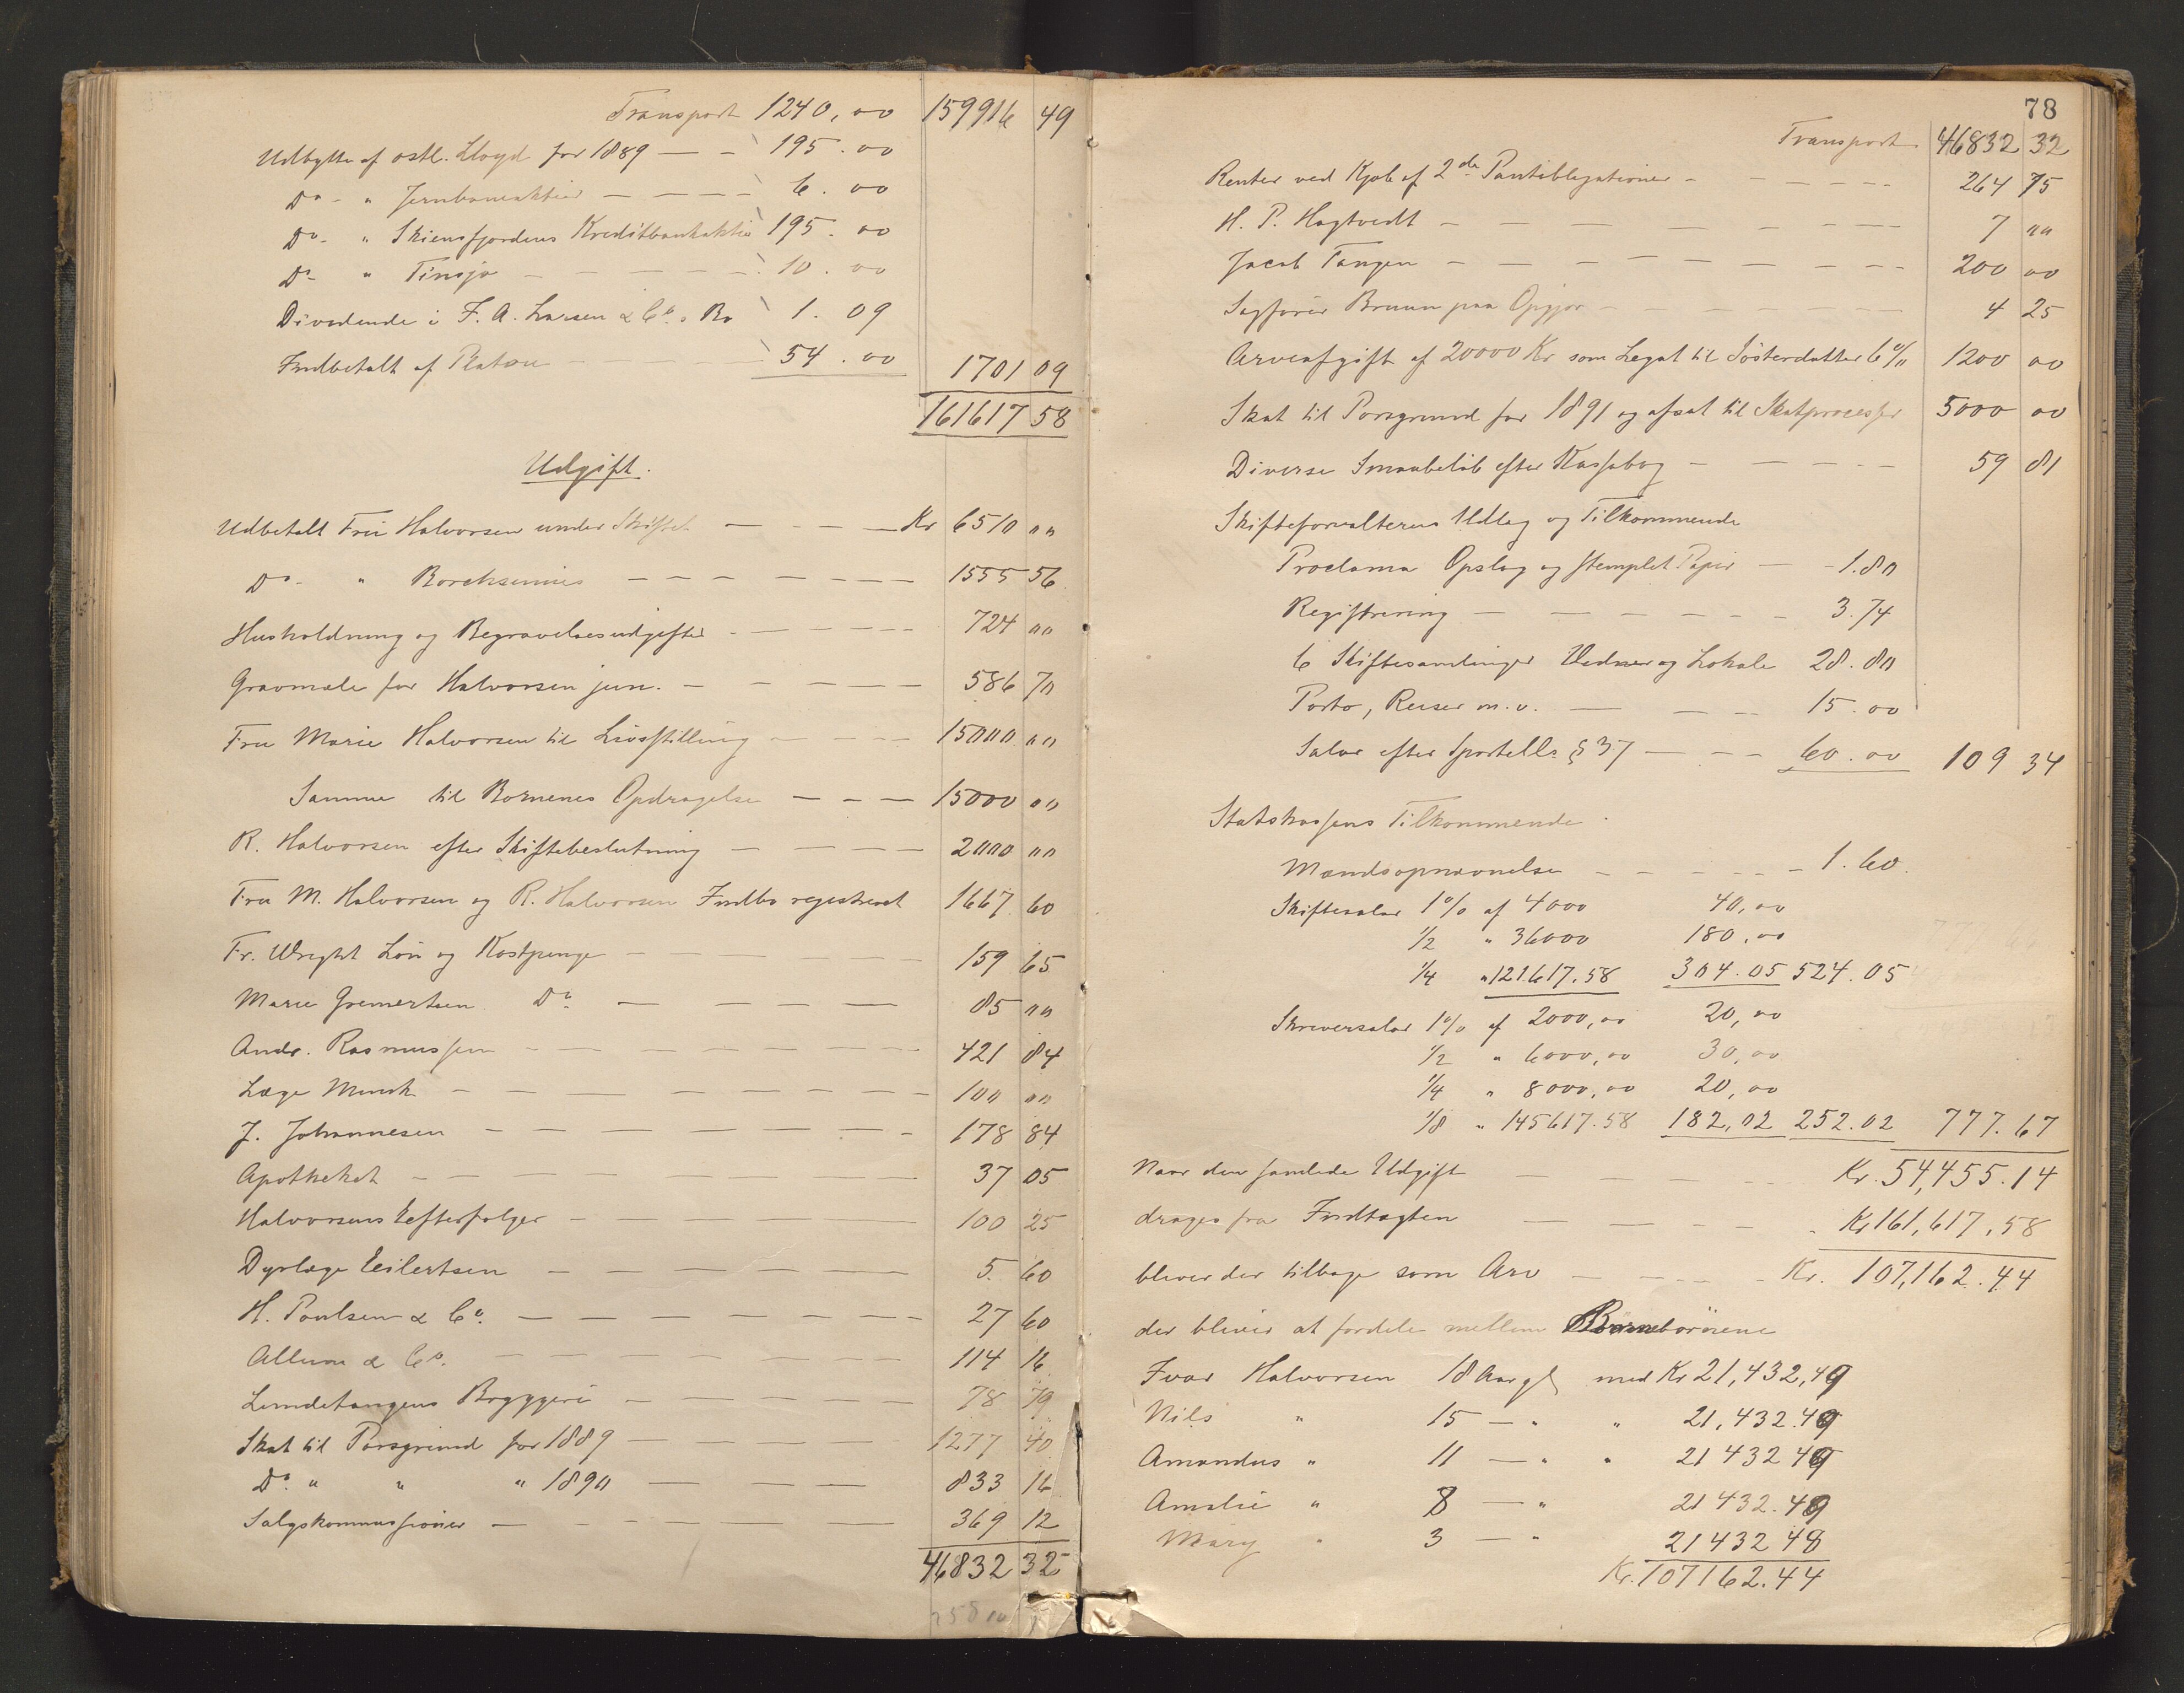 Transport 1240,00 159916 49
Udbytte af østl. Lloyd for 1889 — - 195.00
Do - " Jernbaneaktier — — — — 6.00
Do - " Skiensfjordens Kreditbankaktie 195.00
Do " Tinsjø — — — — — 10.00
Dividende i F. A. Larsen & Co. Bo 1.09
Indbetalt af Platou — — — — 54.00 1701 09
161617 58
Udgift.
Udbetalt Fru Halvorsen under Skiftet — — — — Kr 6510 00
Do - " Borchsenius — — — — — — — 1555 56
Husholdning og Begravelsesudgifter — — — — — 724 00
Gravmæle for Halvorsen jun. — — — — — 586 70
Fru Marie Halvorsen til Livsstilling — — — — 15000 00
Samme til Børnenes Opdragelse — — — 15000 00
R. Halvorsen efter Skiftebeslutning — — — — 2000 00
Fru M. Halvorsen og R. Halvorsen Indbo registreret 1667 60
Fr. Wright Løn og Kostpenge — — — — 159 65
Marie Gremertsen Do — — — — 85 00
Andr. Rasmussen — — — — — — 421 84
Læge Munk — — — — — — — 100 00
J. Johannesen — — — — — — — 178 84
Apotheket — — — — — — — 37 05
Halvorsens Eefterfølger — — — — — 100 25
Dyrlæge Eilertsen — — — — — — 5. 60
H. Poulsen & Co. — — — — — — — 27 60
Allum & Co. — — — — — — — 114 16
Lundetangens Bryggeri — — — — — 78 79
Skat til Porsgrund for 1889 — — — — 1277 40
Do. " " " 1890 — — — 833 16
Salgskommissioner — — — — — — 369 12
46832 32
78
Transport 46832 32
Renter ved Kjøb af 2de Pantobligationer — — — — — 264 75
H. P. Hagtvedt — — — — — — — — 7 00
Jacob Tangen — — — — — — — — — 200 00
Sagfører Bruun paa Opgjør — — — — — — — 4 25
Arveafgift af 20000 Kr som Legat til Søsterdatter 6% 1200 00
Skat til Porsgrund for 1891 og afsat til Skatprocesser 5000 00
Diverse Smaabeløb efter Kassabog — — — — — 59 81
Skifteforvalterens Udlæg og Tilkommende
Proclama Opslag og stemplet Papir — - 1.80
Registrering — — — — — — — 3.74
6 Skiftesamlinger Vidner og Lokale 28.80
Porto, Reiser m.v. — — — 15.00
Salær efter Sportelle § 37 — — — 60.00 109 34
Statskassens Tilkommende
Mændsopnævnelse — — — — — — 1.60.
Skiftesalær 1% af 4000 40,00
1/2 " 36000 180,00
1/4 " 121617.58 304.05 524.05
Skriversalær 1% af 2000,00 20,00
1/2 " 6000,00 30,00
1/4 " 8000,00 20,00
1/8 " 145617.58 182,02 252.02 777.67
Naar den samlede Udgift — — — — — Kr. 54,455.14
drages fra Indtægten — — — — — Kr 161,617,58
bliver der tilbage som Arv — — — — — Kr. 107,162.44
der bliver at fordele mellem Børnebørnene
Ivar Halvorsen 18 Aar gl med Kr 21,432,49
Nils " 15 — " " 21,432.49
Amandus " 11 — " " 21432 49
Amalie " 8 — " 21432.49
Mary " 3 — " 21432 48
Kr. 107162.44